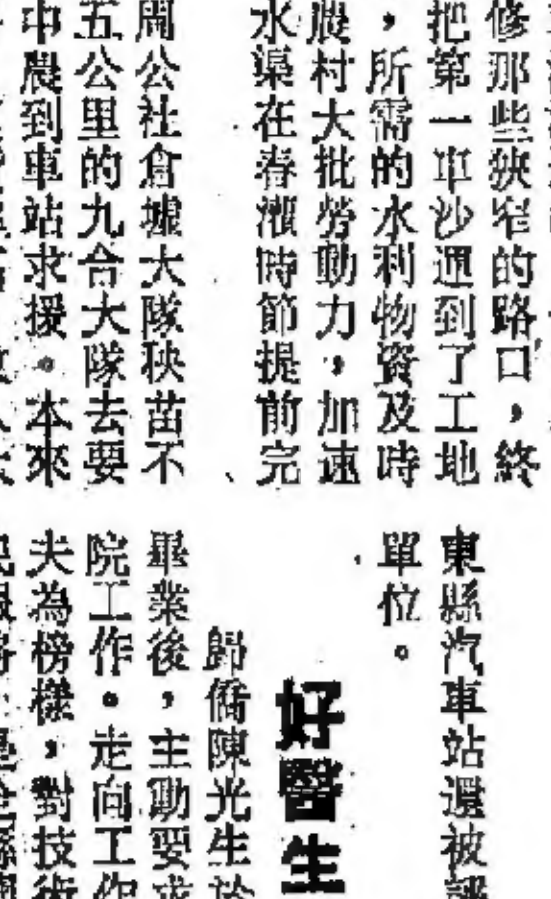 修那些狹窄的路口，終
把第一車沙運到了工地
，所需的水利物資及時
農村大批勞動力，加速
水渠在春灌時節提前完
周公社倉墟大隊秧苗不
五公里的九合大隊去要
中農到車站求援。本來
東縣汽車站還被評
單位。
好醫生
歸僑陳光生於
畢業後，主動要求
院工作。走向工作
夫為榜樣，對技術